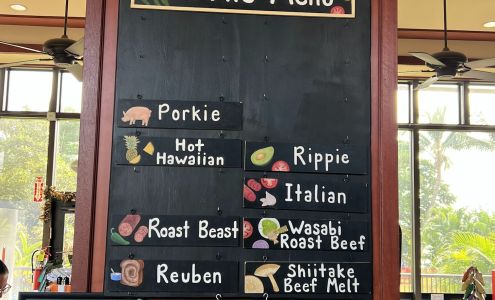 Menu
Porkie
Hot
Hawaiian
Rippie
Italian
Roast Beast
Wasabi
Roast Beef
Reuben
Shiitake
Beef Melt